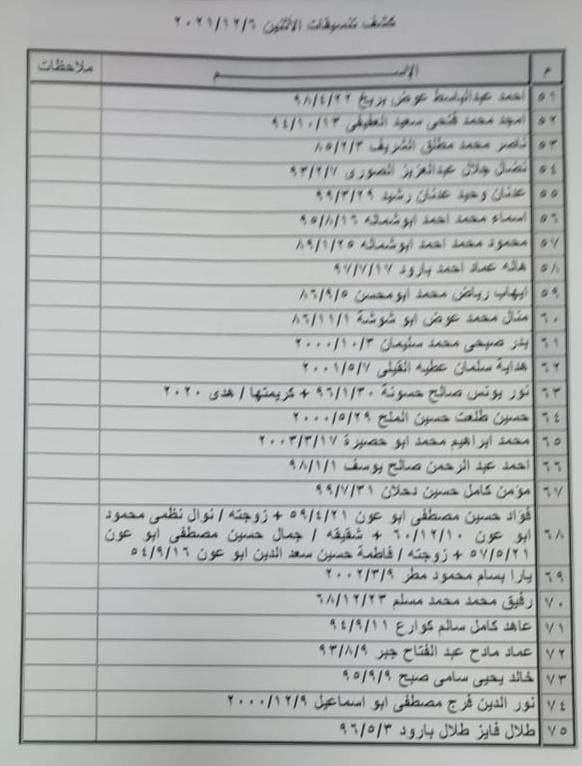 كشف تنسيقات الاثنين ٢٠٢١/١٢/٦
م الإســـــــم ملاحظات
٥١ احمد عبدالباسط عوض بربخ ٩٨/٤/٢٢
٥٢ امجد محمد فتحى سعيد العفيفى ٩٤/١٠/١٣
٥٣ ناصر محمد مطلق الشريف ٨٥/٢/٣
٥٤ نضال جلال عبدالعزيز الصورى ٩٣/٢/٧
٥٥ عدنان وحيد عدنان رشيد ٩٩/٣/٢٩
٥٦ اسماء محمد احمد ابوشماله ٩٥/٨/١٦
٥٧ محمود محمد احمد ابوشماله ٨٩/١/٢٥
٥٨ هاله عماد احمد بارود ٩٧/٧/١٧
٥٩ ايهاب رياض محمد ابومحسن ٨٦/٩/٥
٦٠ منال محمد عوض ابو شوشة ٨٦/١١/١
٦١ بدر صبحى محمد سليمان ٢٠٠٠/١٠/٣
٦٢ هداية سلمان عطيه القيلى ٢٠٠١/٥/٧
٦٣ نور يونس صالح حسونة ٩٦/١/٣٠ + كريمتها / هدى ٢٠٢٠
٦٤ حسين طلعت حسين الملح ٢٠٠٠/٥/٢٩
٦٥ محمد ابراهيم محمد ابو حصيرة ٢٠٠٣/٣/١٧
٦٦ احمد عبد الرحمن صالح يوسف ٩٨/١/١
٦٧ مؤمن كامل حسين دحلان ٩٩/٧/٣١
٦٨ فؤاد حسين مصطفى ابو عون ٥٩/٤/٢١ + زوجته / نوال نظمى محمود
ابو عون ٦٠/١٢/١٠ + شقيقه / جمال حسين مصطفى ابو عون
٥٧/٥/٢١ + زوجته / فاطمة حسين سعد الدين ابو عون ٥٤/٩/١٦
٦٩ يارا بسام محمود مطر ٢٠٠٢/٣/٩
٧٠ رفيق محمد محمد مسلم ٦٨/١٢/٢٣
٧١ عاهد كامل سالم كوارع ٩٤/٩/١١
٧٢ عماد مادح عبد الفتاح جبر ٩٣/٨/٩
٧٣ خالد يحيى سامى صبح ٩٥/٩/٩
٧٤ نور الدين فرج مصطفى ابو اسماعيل ٢٠٠٠/١٢/٩
٧٥ طلال فايز طلال بارود ٩٦/٥/٣